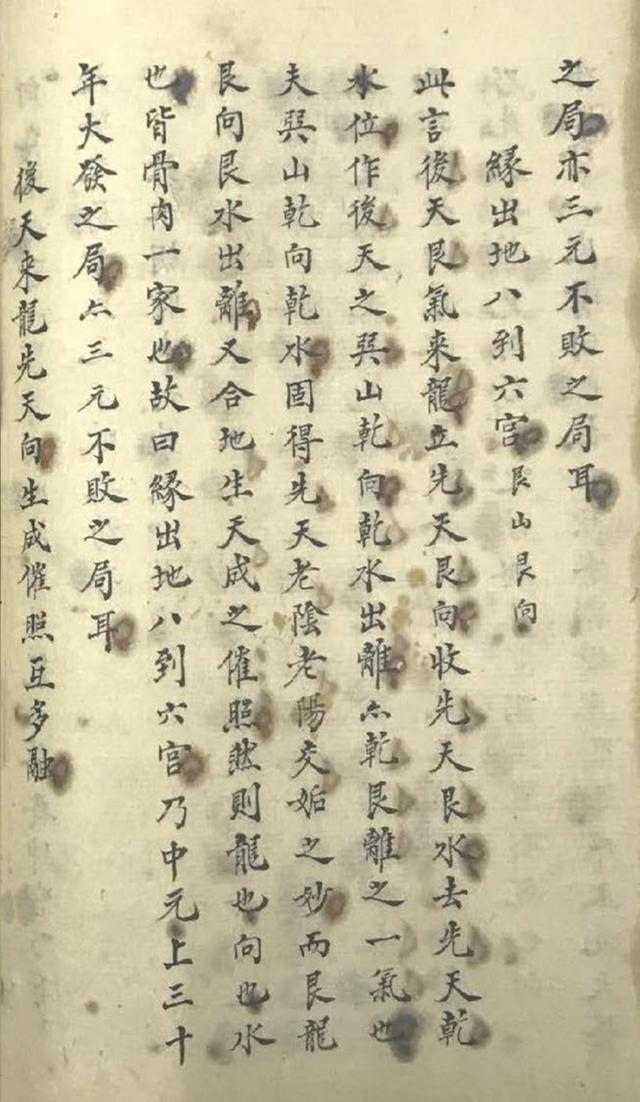 之局亦三元不敗之局耳
緣出地八到六宮艮山艮向
此言後天艮氣来龍立先天艮向收先天艮水去先天乾
水位作後天之巽山乾向乾水出離亠乾艮離之一氣也
夫巽山乾向乾水固得先天老陰老陽交姤之妙而艮龍
艮向艮水出離又合地生天成之催照然則龍也向也水
也皆骨肉一家也故曰緣出地八到六宮乃中元上三十
年大發之局亠三元不敗之局耳
後天来龍先天向生成催照互多融